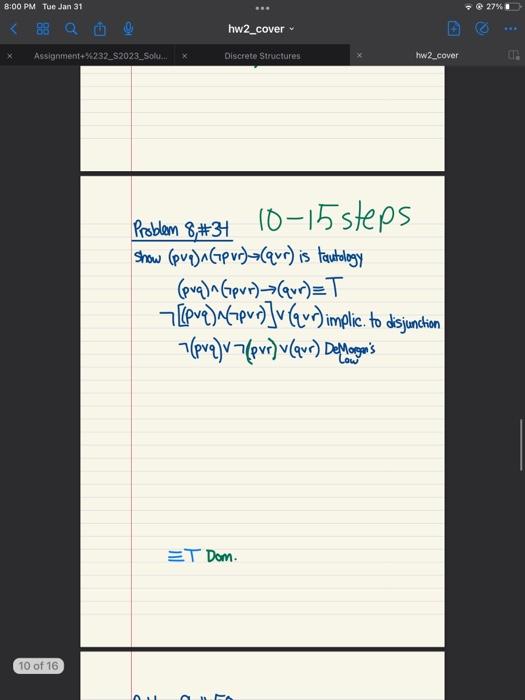 8:00 PM Tue Jan 31
27%
hw2_cover
Assignment+%232_S2023_Solu...
Discrete Structures
hw2_cover
Problem 8,#34 10-15 steps
Show (p∨q)∧(¬p∨r)→(q∨r) is tautology
(p∨q)∧(¬p∨r)→(q∨r)≡T
¬[(p∨q)∧(¬p∨r)]∨(q∨r) implic. to disjunction
¬(p∨q)∨¬(p∨r)∨(q∨r) DeMorgan's Law
≡T Dom.
10 of 16